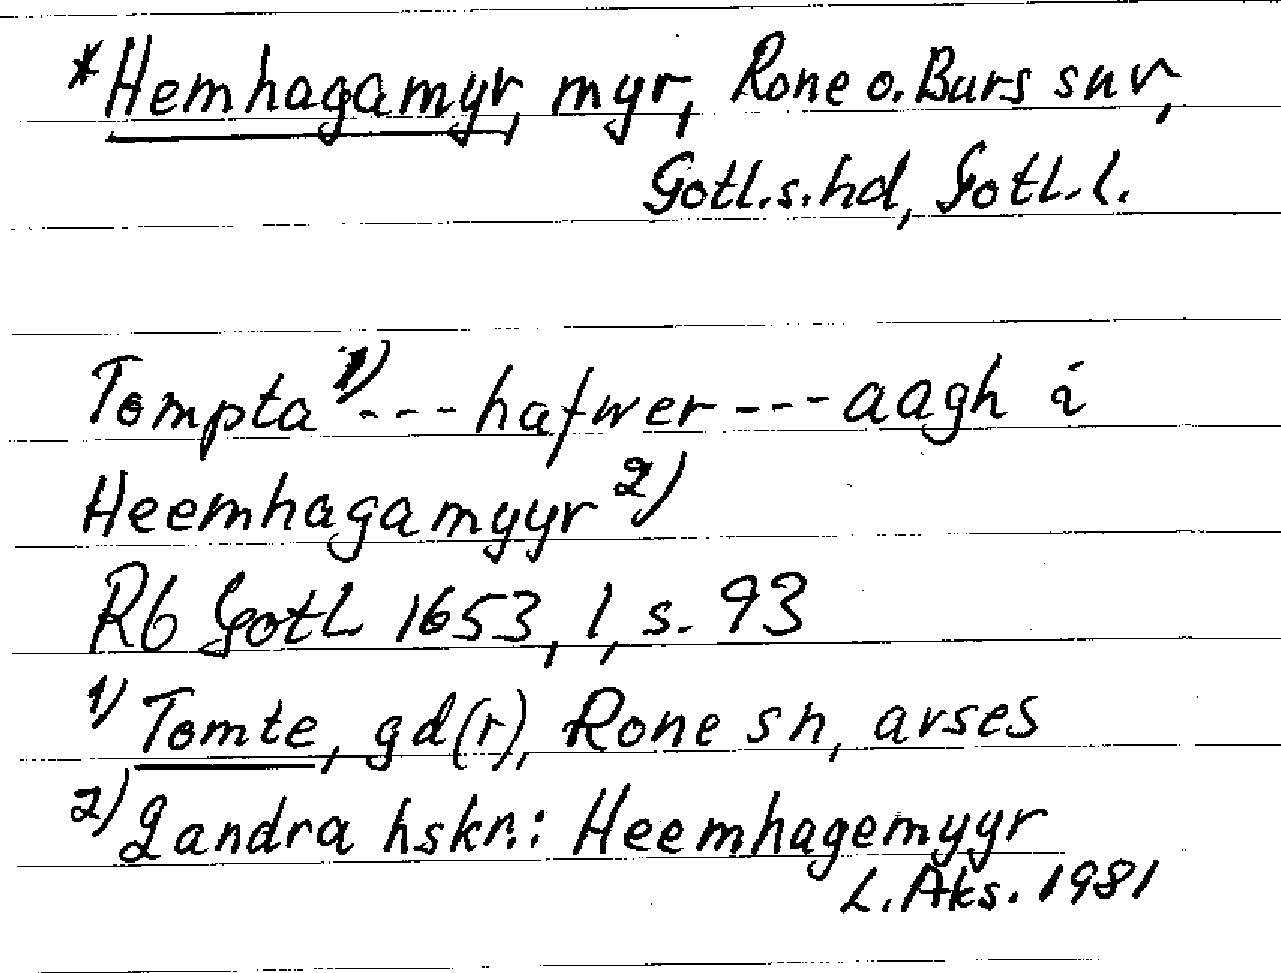 *Hemhagamyr, myr, Rone o. Burs snr,
Gotl.s.hd, Gotl.l.
Tompta 1) --- hafwer --- aagh i
Heemhagamyyr 2)
Rb Gotl 1653, 1, s. 93
1) Tomte, gd(r), Rone sn, avses
2) I andra hskr.: Heemhagemyyr
L. Aks. 1981